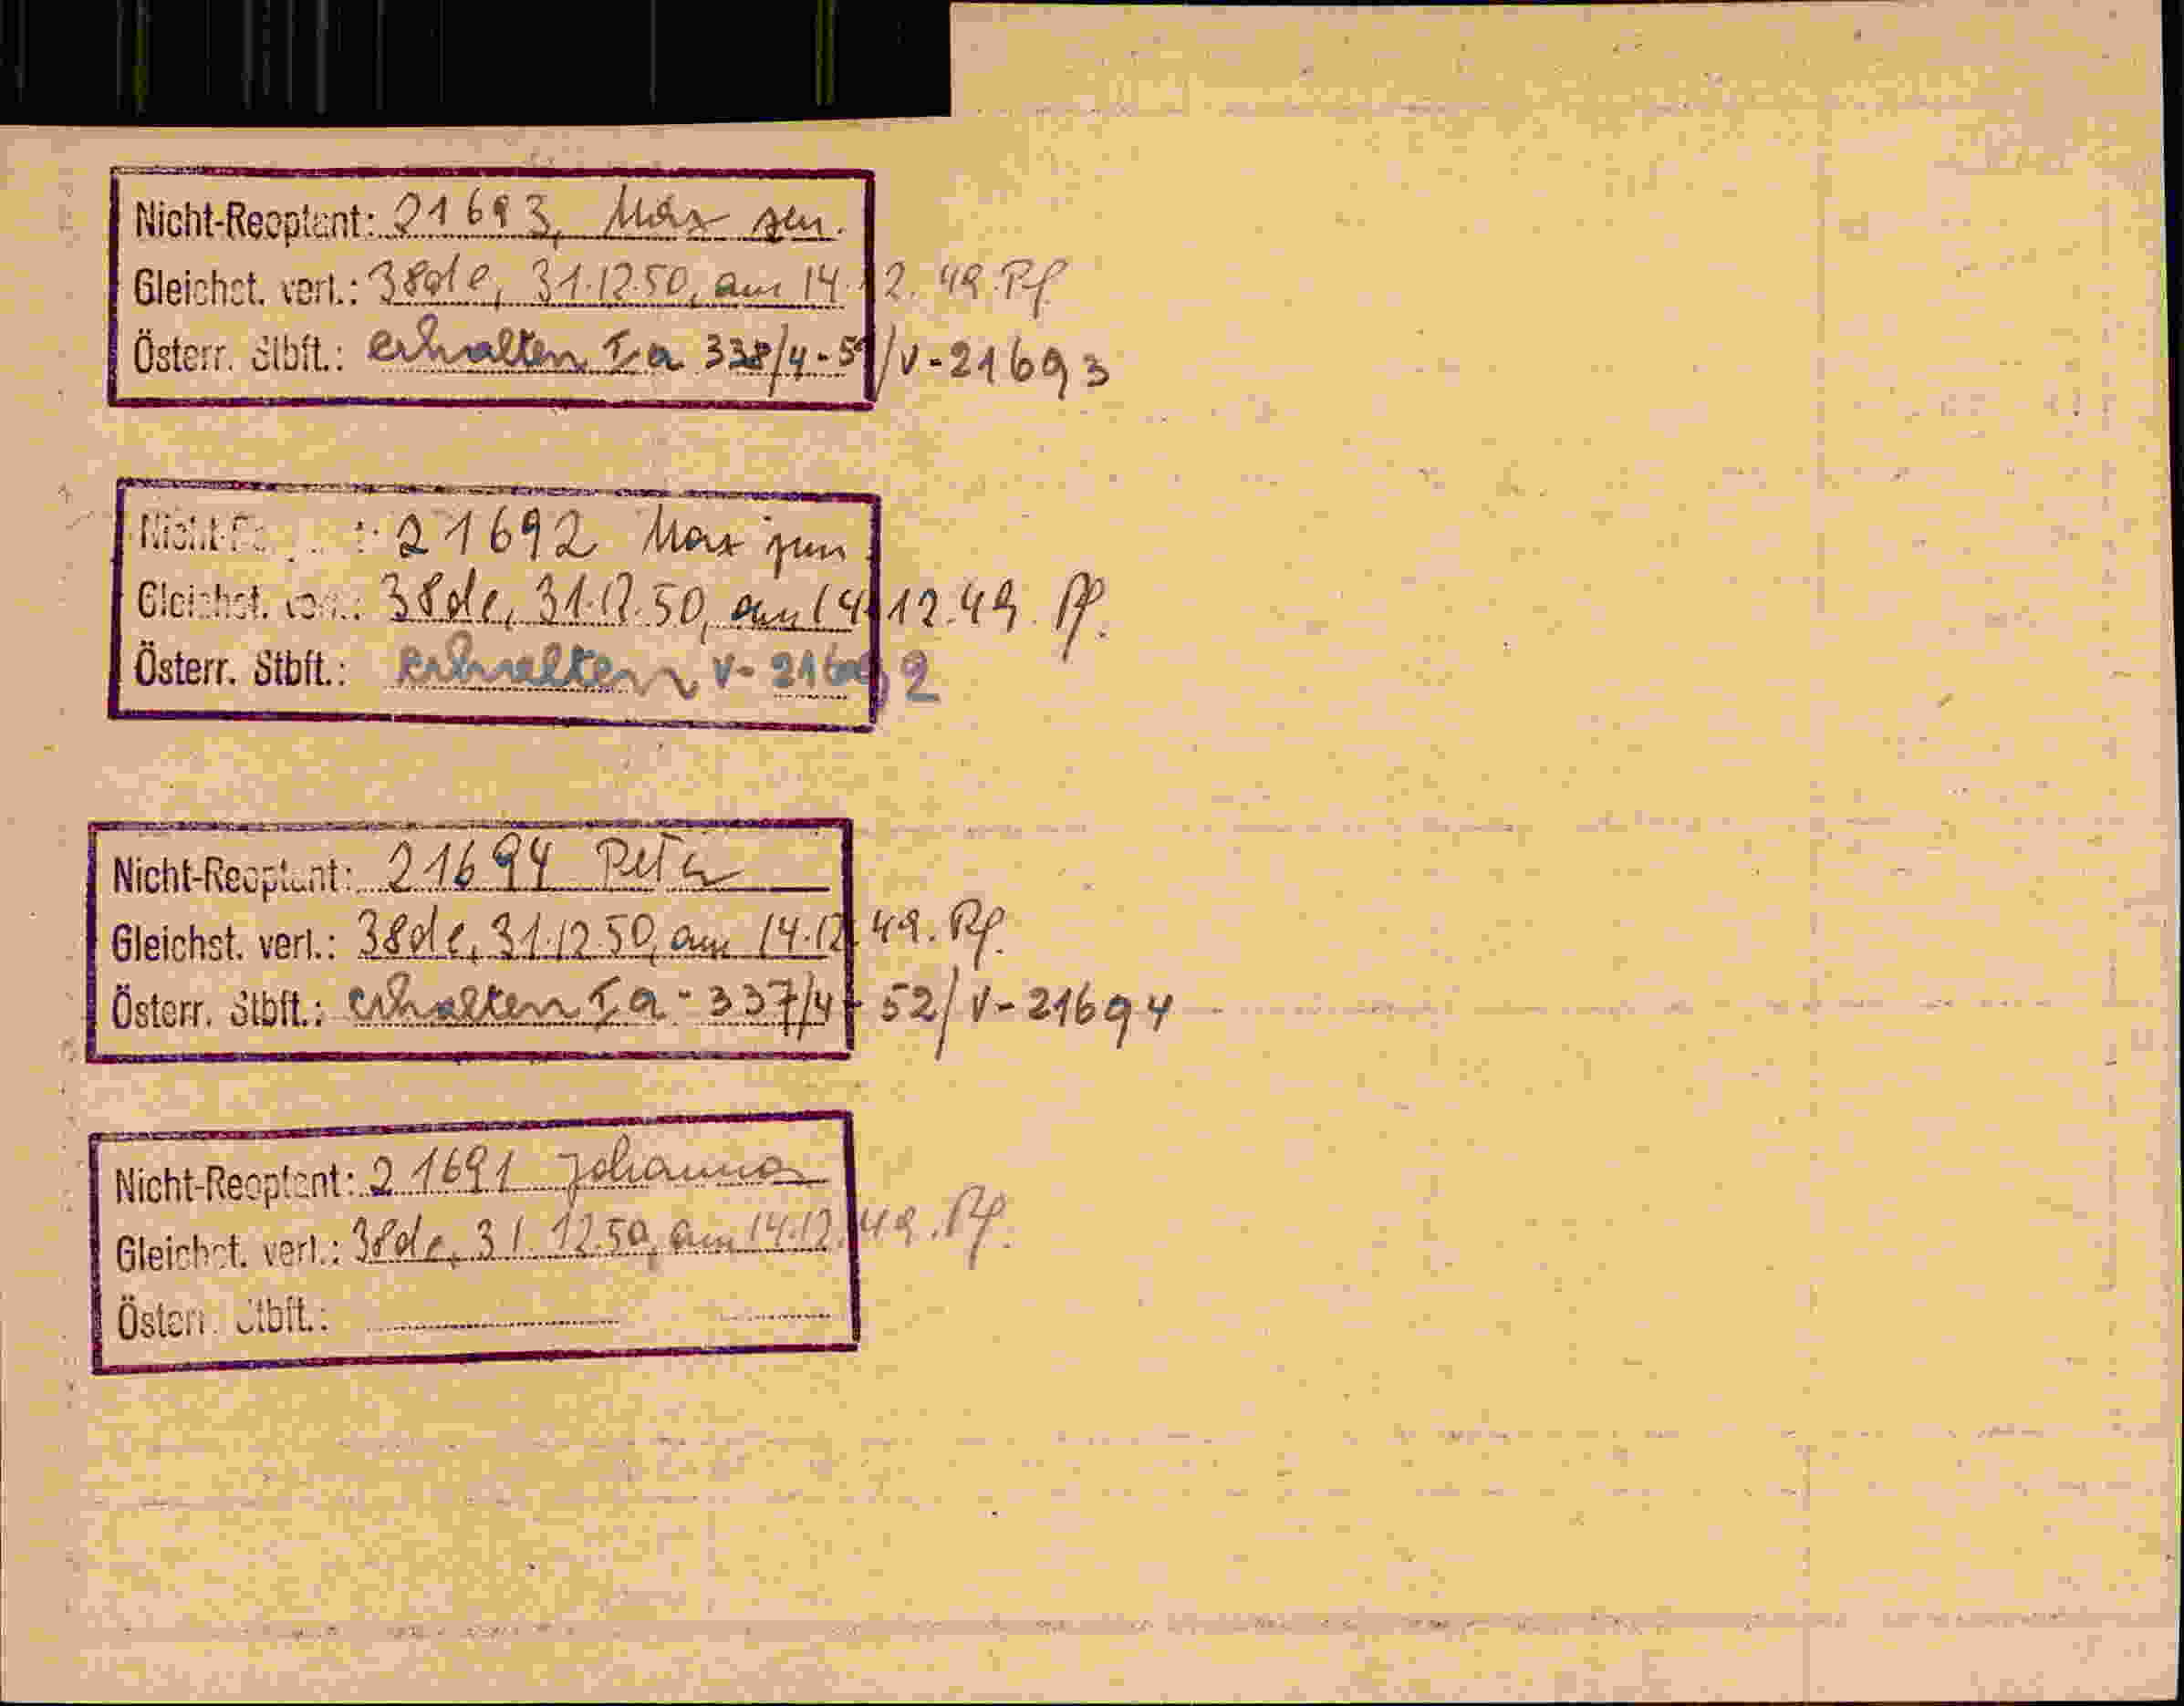 Nicht-Reoptant: 21693, Max sen.
Gleichst. verl.: 38de, 31.12.50, am 14.12.49. Pf.
Österr. Stbft.: erhalten I a 338/4-51/V-21693
Nicht-Reoptant: 21692 Max jun
Gleichst. verl.: 38de, 31.12.50, am 14.12.49. Pf.
Österr. Stbft.: erhalten V-21692
Nicht-Reoptant: 21694 Peter
Gleichst. verl.: 38de, 31.12.50, am 14.12.49. Pf.
Österr. Stbft.: erhalten I a - 337/4-52/V-21694
Nicht-Reoptant: 21691 Johanna
Gleichst. verl.: 38de, 31.12.50, am 14.12.49. Pf.
Österr. Stbft.: